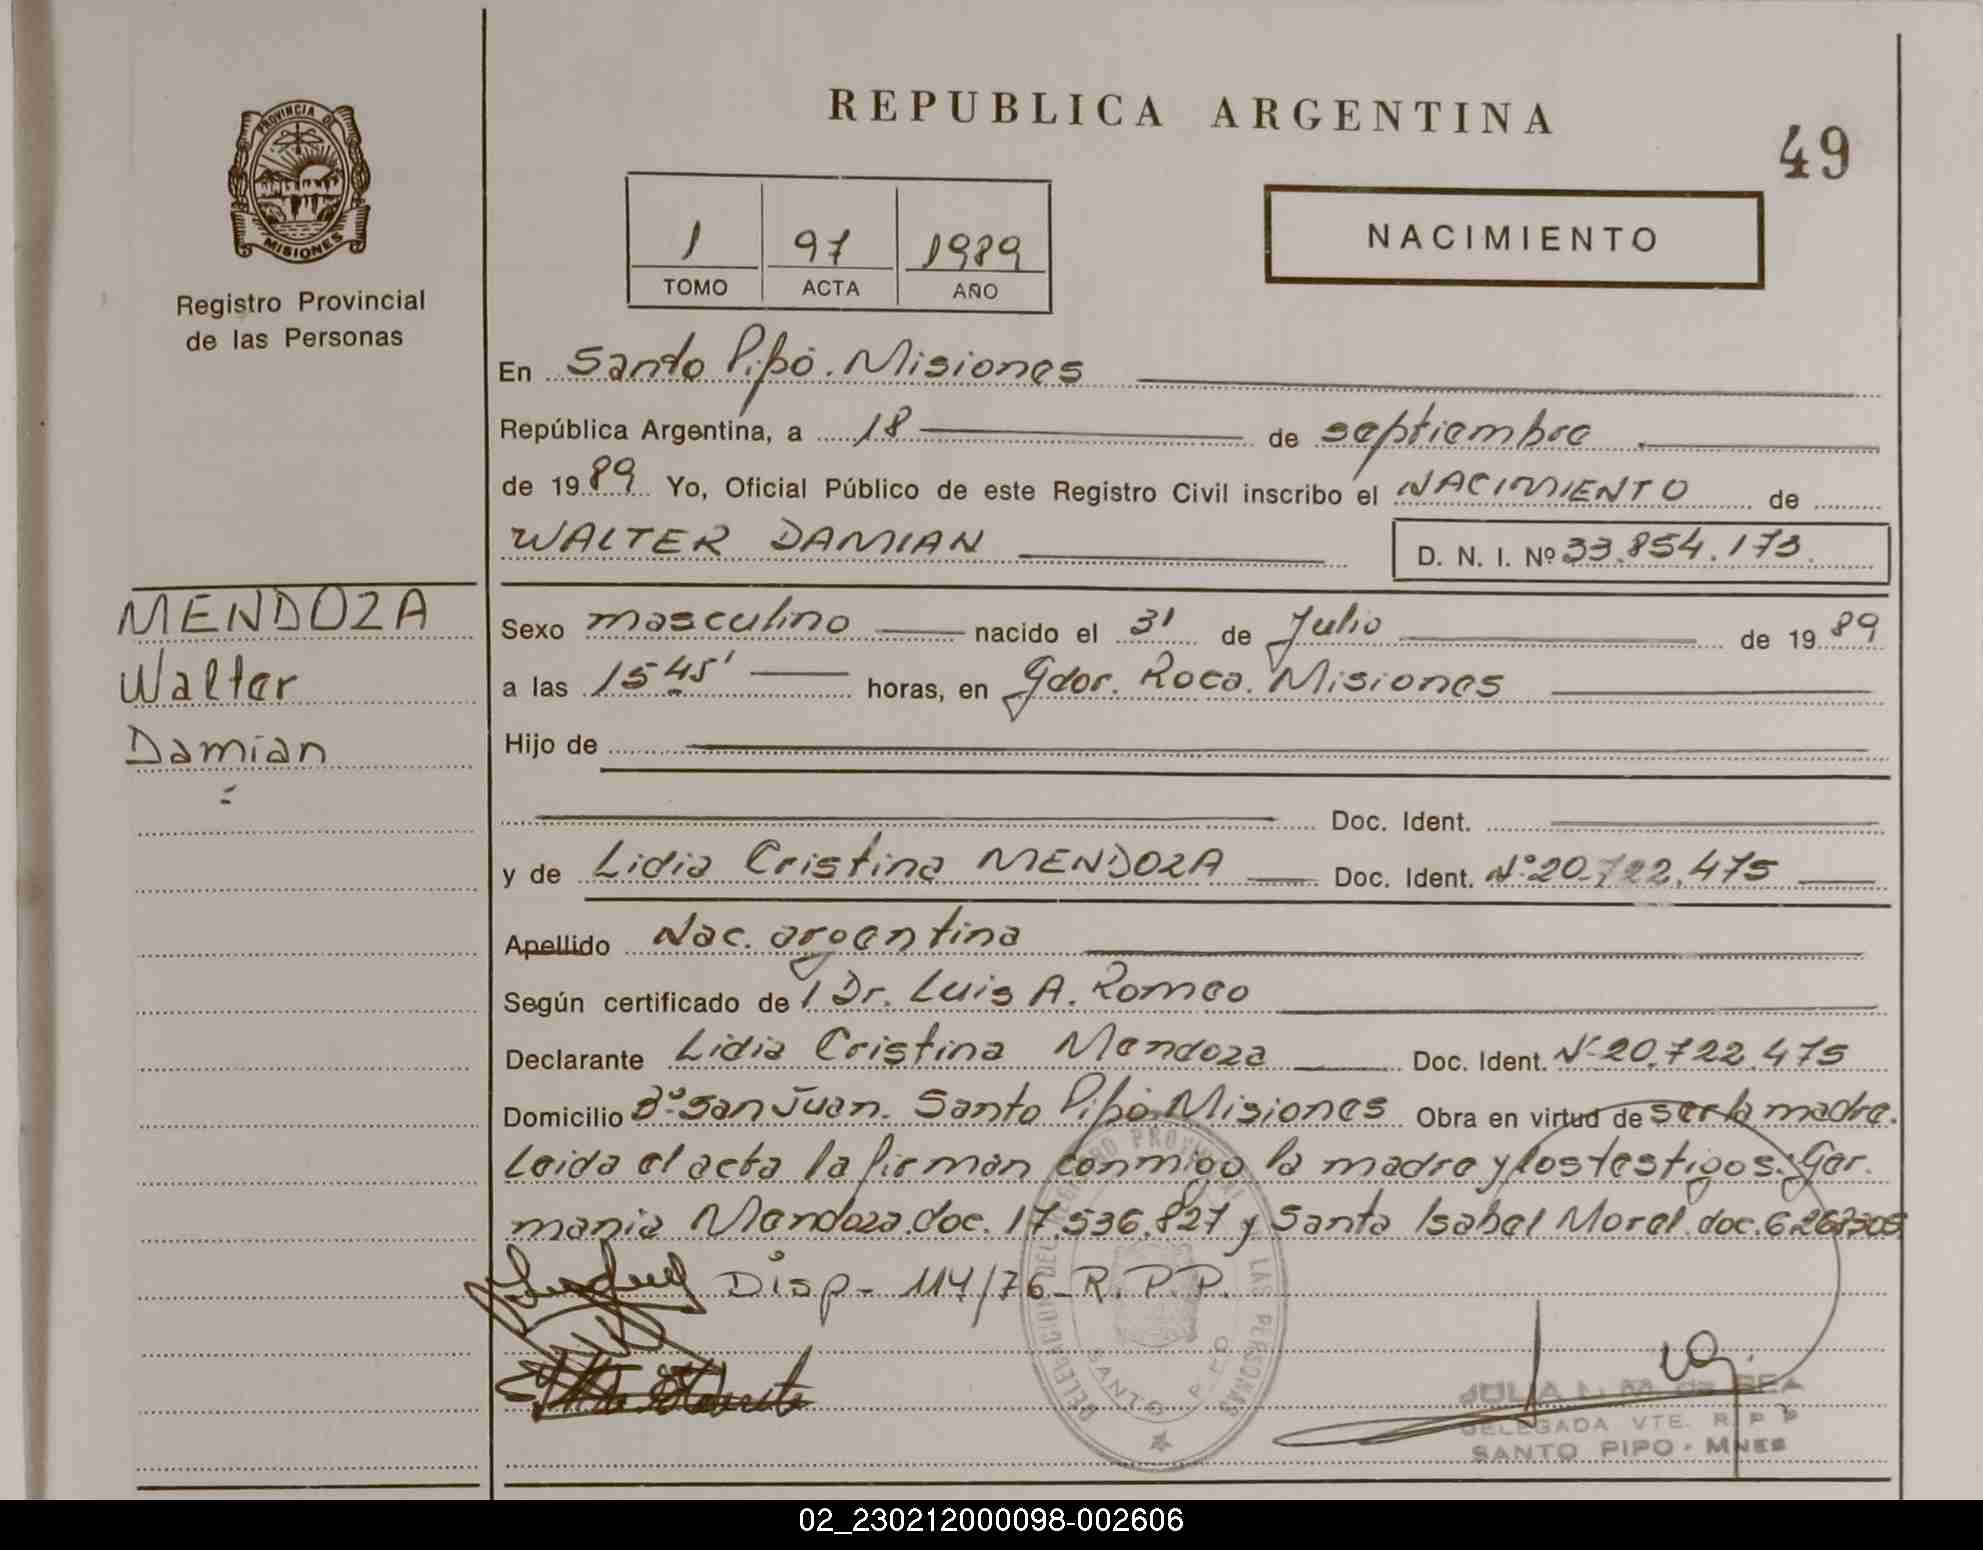 PROVINCIA DE
MISIONES
Registro Provincial
de las Personas
MENDOZA
Walter
Damian
REPUBLICA ARGENTINA
49
1 97 1989
TOMO ACTA AÑO
NACIMIENTO
En Santo Pipó. Misiones
República Argentina, a 18 de septiembre
de 1989 Yo, Oficial Público de este Registro Civil inscribo el NACIMIENTO de
WALTER DAMIAN D. N. I. Nº 33.854.173.
Sexo masculino nacido el 31 de Julio de 1989
a las 15 45' horas, en Gdor. Roca. Misiones
Hijo de
Doc. Ident.
y de Lidia Cristina MENDOZA Doc. Ident. Nº 20.722.475
Apellido Nac. argentina
Según certificado de 1 Dr. Luis A. Romeo
Declarante Lidia Cristina Mendoza Doc. Ident. Nº 20.722.475
Domicilio Bº San Juan. Santo Pipó. Misiones Obra en virtud de ser la madre.
Leida el acta la firman conmigo la madre y los testigos: Ger.
mania Mendoza. doc. 17.536.827 y Santa Isabel Morel. doc.
Disp- 114/76 - R.P.P.
DELEGACION DEL REGISTRO PROVINCIAL DE LAS PERSONAS
SANTO PIPO
JULIA L. M. de BEA
DELEGADA VTE. R P P
SANTO PIPO - MNES
02_230212000098-002606